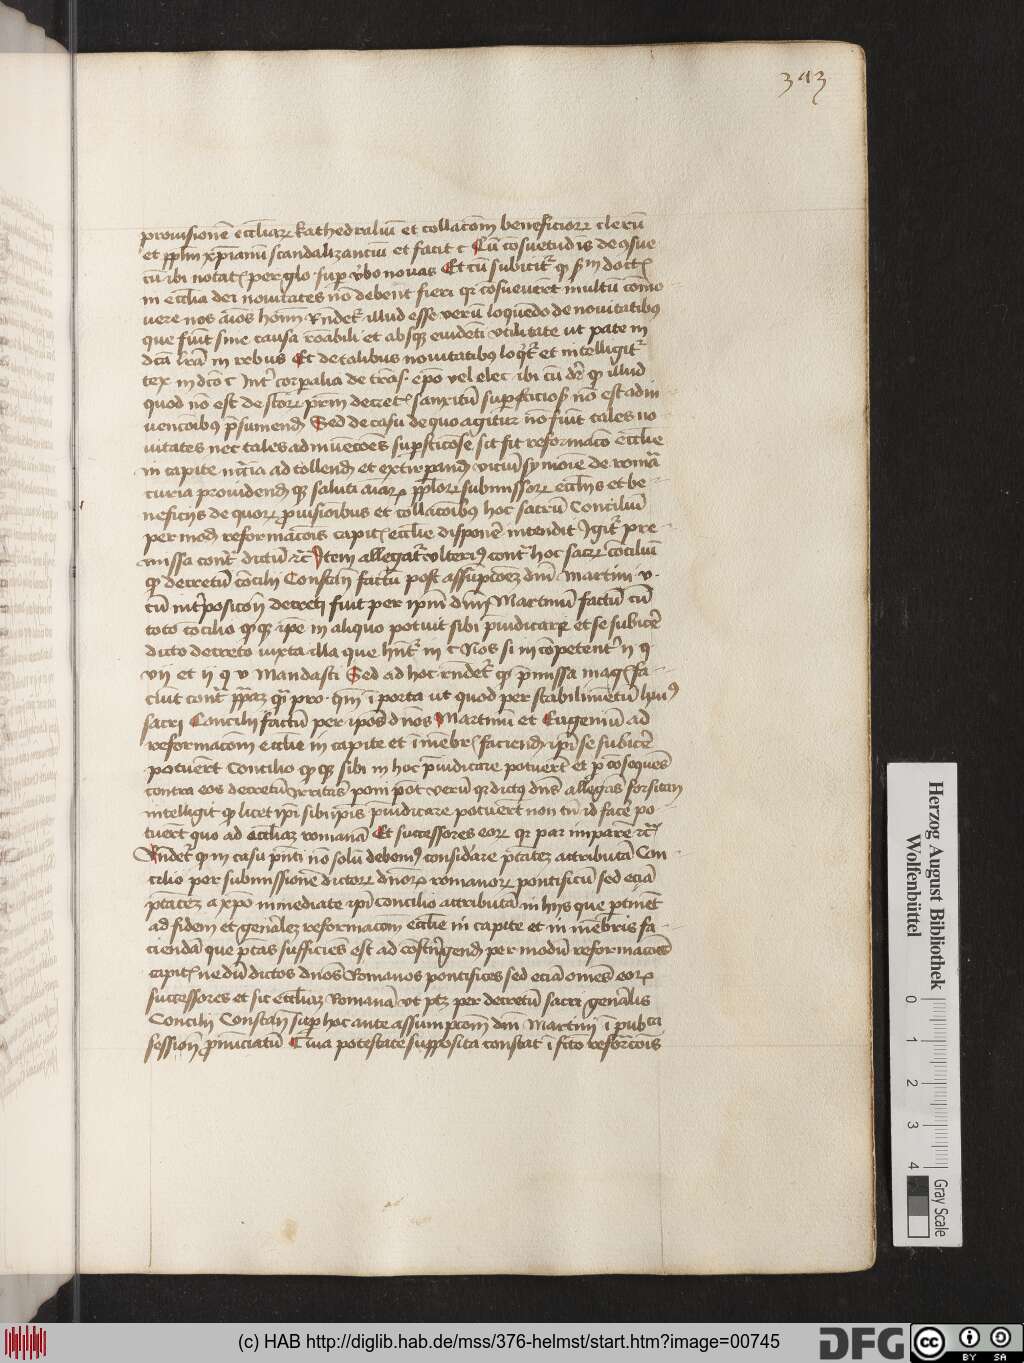 393
prouisionē eccl̄iarꝝ kathedraliū et collacōm beneficiorꝝ clerū
et ppl̄m xp̄ianū scandalizanciū et facit c̄ Cū cōsuetudīs de ꝯsue
cū ibi notatꝭ per glo sup v̓bo nouas Et cū subicit᷑ ꝙ
in eccl̄ia dei nouitates nō debent fieri qꝛ cōsueuerūt multū cōmo
uere nos aīos hoīm Rn̄det᷑ illud esse verū loquēdo de nouitatibꝰ
que fiūt sine causa rōabili et absqꝫ euidēti vtilitate ut pate in
dc̄a lr̄a in rebus Et de talibus nouitatibꝰ loqt᷑ et intelligit᷑
tex in dc̄o c̄ Int̓ corpalia de trās ep̄o vel elec ibi cū dr̄ ꝙ illud
quod nō est de sc̄torꝝ pr̄m decretꝭ sanxitū supsticiosꝭ nō est adin
uencōibꝰ p̄sumendꝭ Sed de casu de quo agitur nō fiūt tales no
uitates nec tales adinuēcōes supsticōse sit fit reformacō eccl̄ie
in capite nr̄ia ad tollendꝭ et extirpandꝭ viciū symoīe de romā
curia prouidendꝭ qꝫ saluti aīarꝝ pp̄lorꝝ submissorꝝ eccl̄iis et be
neficiis de quorꝝ ꝓuisionibus et collacōibꝰ hoc sacrū Conciliū
per modꝭ reformacōis capitꝭ eccl̄ie disponē intendit Igit᷑ pre
missa cont̓ dictū ⁊c̄ Item allegat᷑ vlteriꝰ cont̓ hoc sacrꝝ cōciliū
ꝙ decretū cōcilij Constan̄ factū post assūpcōeꝫ dn̄i Martini v
cū int̓posicōn decreti fiut per ip̄m dn̄m Martinū factū cū
toto cōcilio ꝙ qꝫ ip̄e in aliquo potuit sibi p̄iudicare et se subicē
dicto decreto iuxta illa que hn̄t᷑ in c̄ Nos si incōpetent̓ ij q
vij et ij q v Mandasti Sed ad hoc rn̄det᷑ ꝙ p̄missa magꝭ fa
ciūt cont̓ pp̄aꝫ qꝫ pro qm̄ ī porta ut quod per stabilimētū huiꝰ
sacri Concilij factū per ip̄os dn̄os Martinū et Eugeniū ad
reformacōm eccl̄ie in capite et ī mēbrꝭ faciendꝭ ip̄i se subicē
potuerūt Concilio ꝙ qꝫ sibi in hoc p̄iudicare potuerūt et ꝑ cōsequēs
contra eos decretū irritās poni pōt verū qꝛ dictꝰ dn̄s allegās forsitan
intelligit ꝙ licet ip̄i sibi ip̄is p̄iudicare potuerūt non tn̄ id facē po
tuerūt quo ad eccl̄iaꝫ romanā Et successores eorꝝ qꝛ par in parē ⁊c̄
Rn̄det᷑ ꝙ in casu pn̄ti nō solū debemꝰ considare ptateꝫ attributā Con
cilio per submissionē dictorꝝ dn̄orꝝ romanorꝝ pontificū sed eciā
ptateꝫ a xp̄o inmediate ip̄i concilio attributā in hijs que ptinēt
ad fidem et gen̄aleꝫ reformacōm eccl̄ie in capite et in mēbris fa
ciendā que ptas sufficiēs est ad cōstrīgendꝭ per modū reformacōis
capitꝭ ne dū dictos dn̄os Romanos pontifices sed eciā omēs eorꝝ
successores et sic eccl̄iaꝫ Romanā vt ptꝫ per decretū sacri gen̄alis
Concilij Constan̄ sup hoc ante assumpcōm dn̄i Martini ī pub ca
session̄ ꝓnūciatū Cuia potestate supposita constat ī fc̄to reforcōis
(c) HAB http://diglib.hab.de/mss/376-helmst/start.htm?image=00745
Herzog August Bibliothek
Wolfenbüttel
0 1 2 3 4
Gray Scale
DFG
cc BY SA